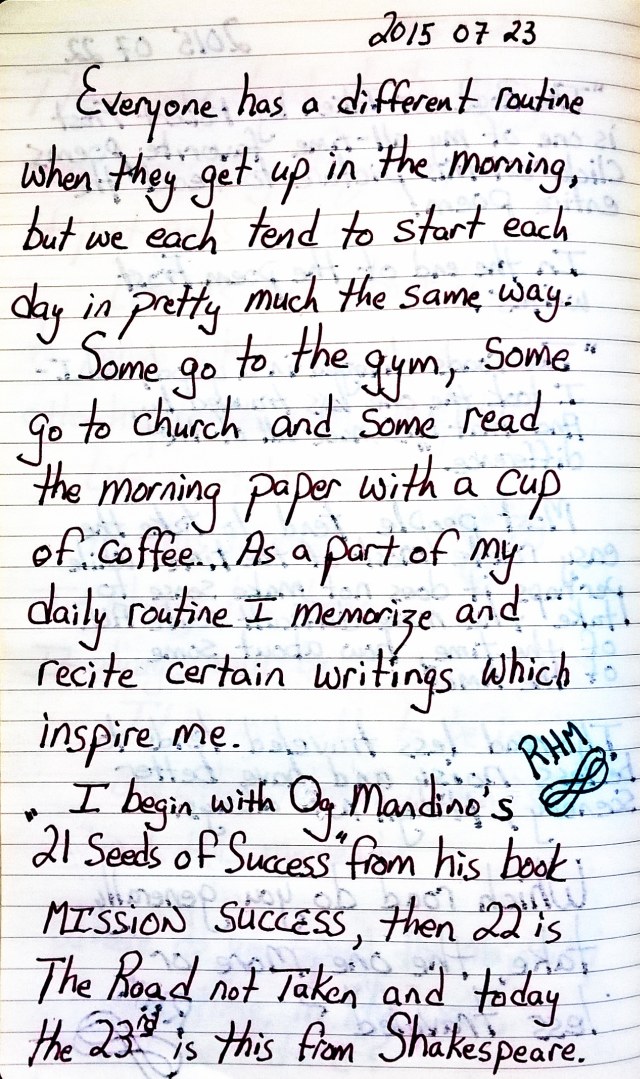 2015 07 23
Everyone has a different routine
when they get up in the morning,
but we each tend to start each
day in pretty much the same way.
Some go to the gym, some
go to church and some read
the morning paper with a cup
of coffee... As a part of my
daily routine I memorize and
recite certain writings which
inspire me.
RHM
I begin with Og Mandino's
"21 Seeds of Success" from his book
MISSION SUCCESS, then 22 is
The Road not Taken and today
the 23rd is this from Shakespeare.